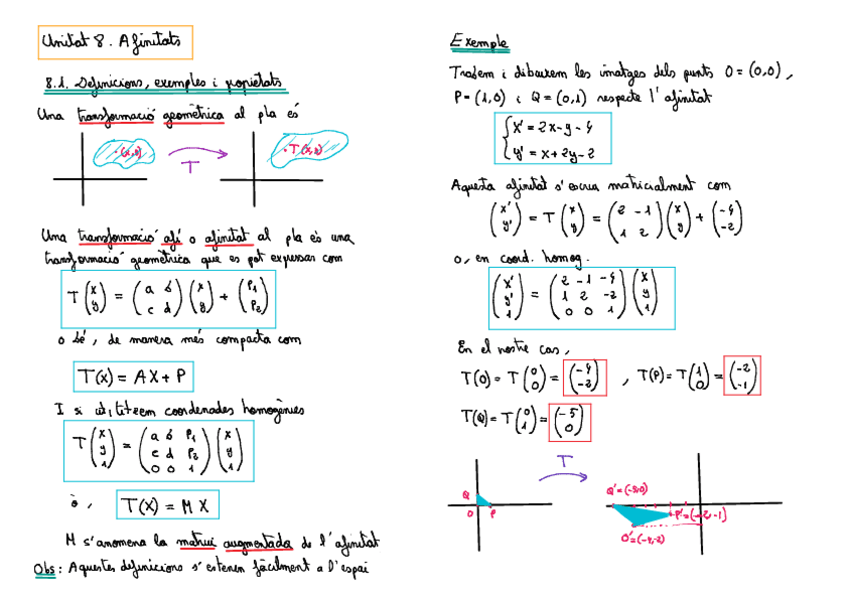 Unitat 8. Afinitats
8.1. Definicions, exemples i propietats
Una transformació geomètrica al pla és
·(x,y) T ·T(x,y)
Una transformació afí o afinitat al pla és una
transformació geomètrica que es pot expressar com
T (x y) = (a b c d) (x y) + (P1 P2)
o bé, de manera més compacta com
T(x) = AX + P
I si utilitzem coordenades homogènies
T (x y 1) = (a b P1 c d P2 0 0 1) (x y 1)
ò, T(x) = M X
M s'anomena la matriu augmentada de l'afinitat
Obs: Aquestes definicions s'estenen fàcilment a l'espai
Exemple
Trobem i dibuixem les imatges dels punts O = (0,0),
P = (1,0) i Q = (0,1) respecte l'afinitat
x' = 2x - y - 4
y' = x + 2y - 2
Aquesta afinitat s'escriu matricialment com
(x' y') = T (x y) = (2 -1 1 2) (x y) + (-4 -2)
o, en coord. homog.
(x' y' 1) = (2 -1 -4 1 2 -2 0 0 1) (x y 1)
En el nostre cas,
T(O) = T (0 0) = (-4 -2), T(P) = T (1 0) = (-2 -1)
T(Q) = T (0 1) = (-5 0)
T
Q O P
Q' = (-5,0)
P' = (-2,-1)
O' = (-4,-2)